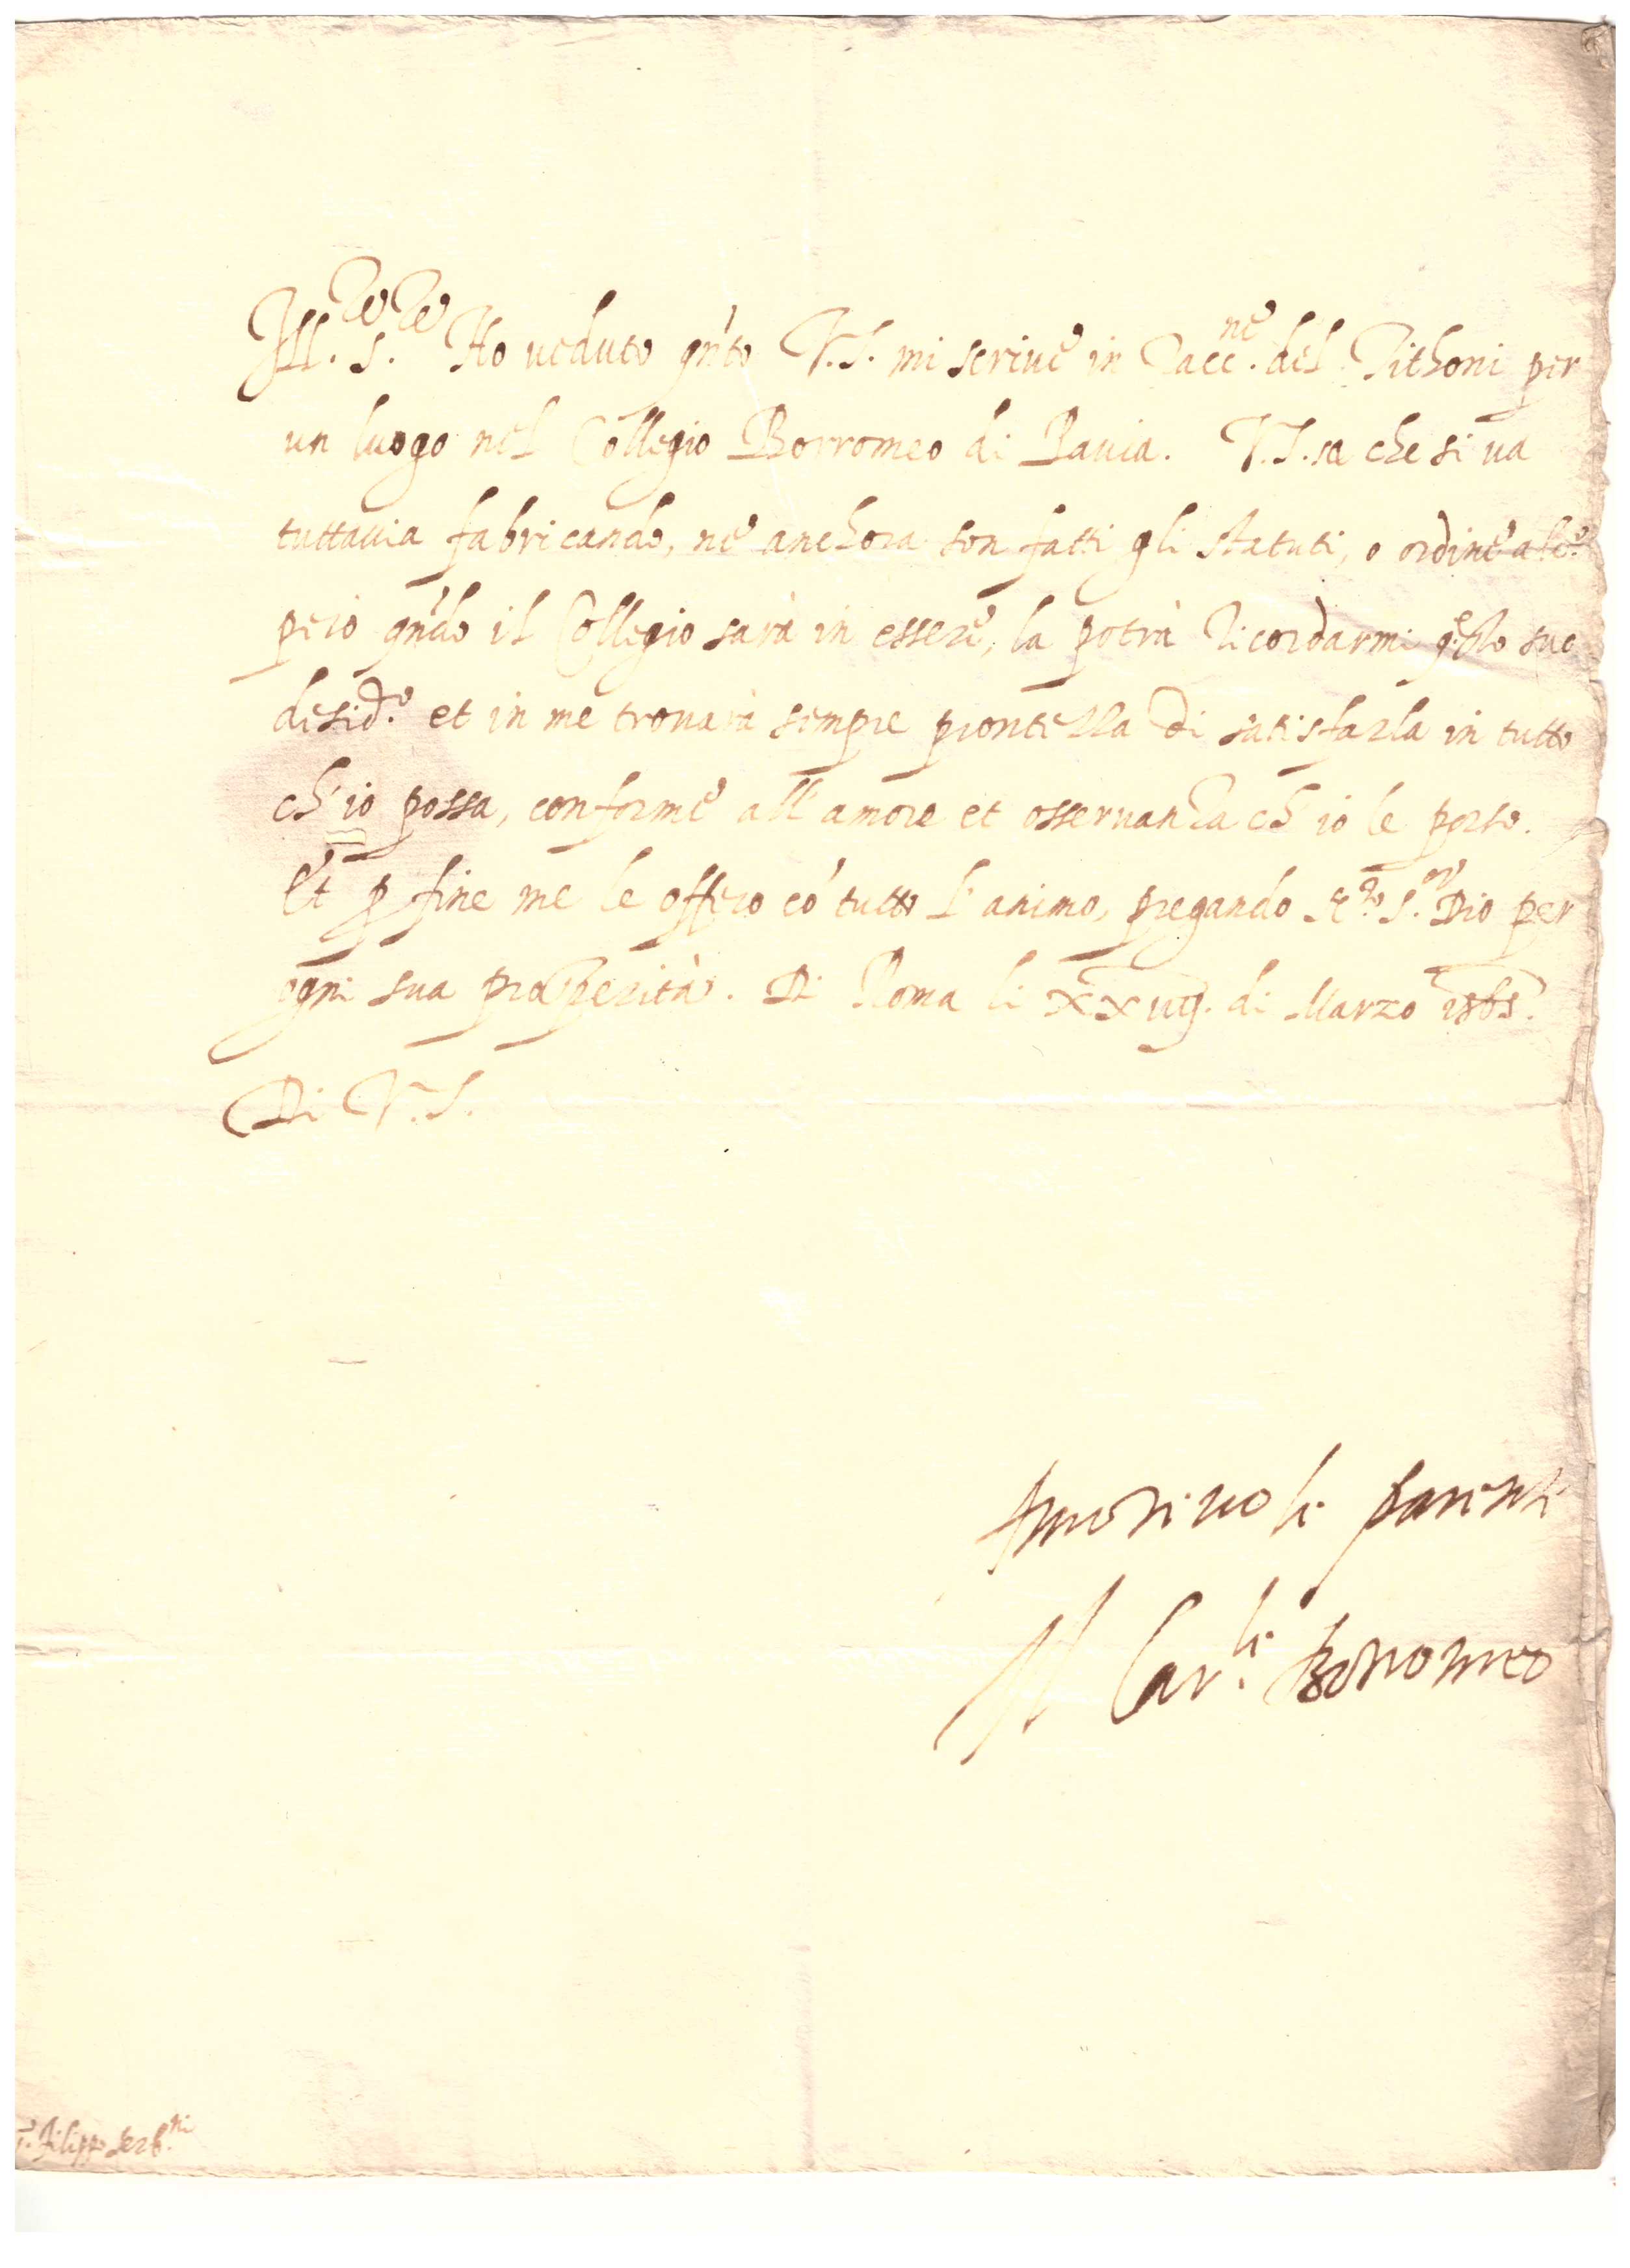 Ill.re S.re Ho veduto qnto V.S. mi scrive in racc.ne del Pithoni per
un luogo nel Collegio Borromeo di Pavia. V.S. sa che si va
tuttavia fabricando, ne anchora son fatti gli statuti, o ordine alc.o
però qndo il Collegio sarà in essere, la potrà ricordarmi qesto suo
desid.o et in me trovarà sempre prontezza di satisfarla in tutto
ch'io possa, conforme all'amore et osservanza ch'io le porto.
Et p fine me le offero cō tutto l'animo, pregando N.ro S.or Dio per
ogni sua prosperità. Di Roma li xxviij. di Marzo 1565.
Di V.S.
Amorevole parente
Il Car.le Borromeo
Filippo Serb.ni